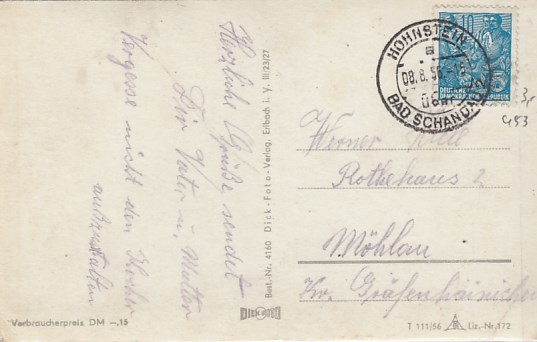 Herzliche Grüße sendet
Dir Vater u. Mutter
Vergesse nicht den
Best.-Nr. 4160 Dick-Foto-Verlag, Erlbach i. V. III/23/27
DICK FOTO
Verbraucherpreis DM -,15
HOHNSTEIN
08.8.56
über
BAD SCHANDAU
DEUTSCHE
DEMOKRATISCHE REPUBLIK
3,-
453
Werner
Rothehaus 2
Möhlau
Kr. Gräfenhainichen
T 111/56 Liz.-Nr. 172